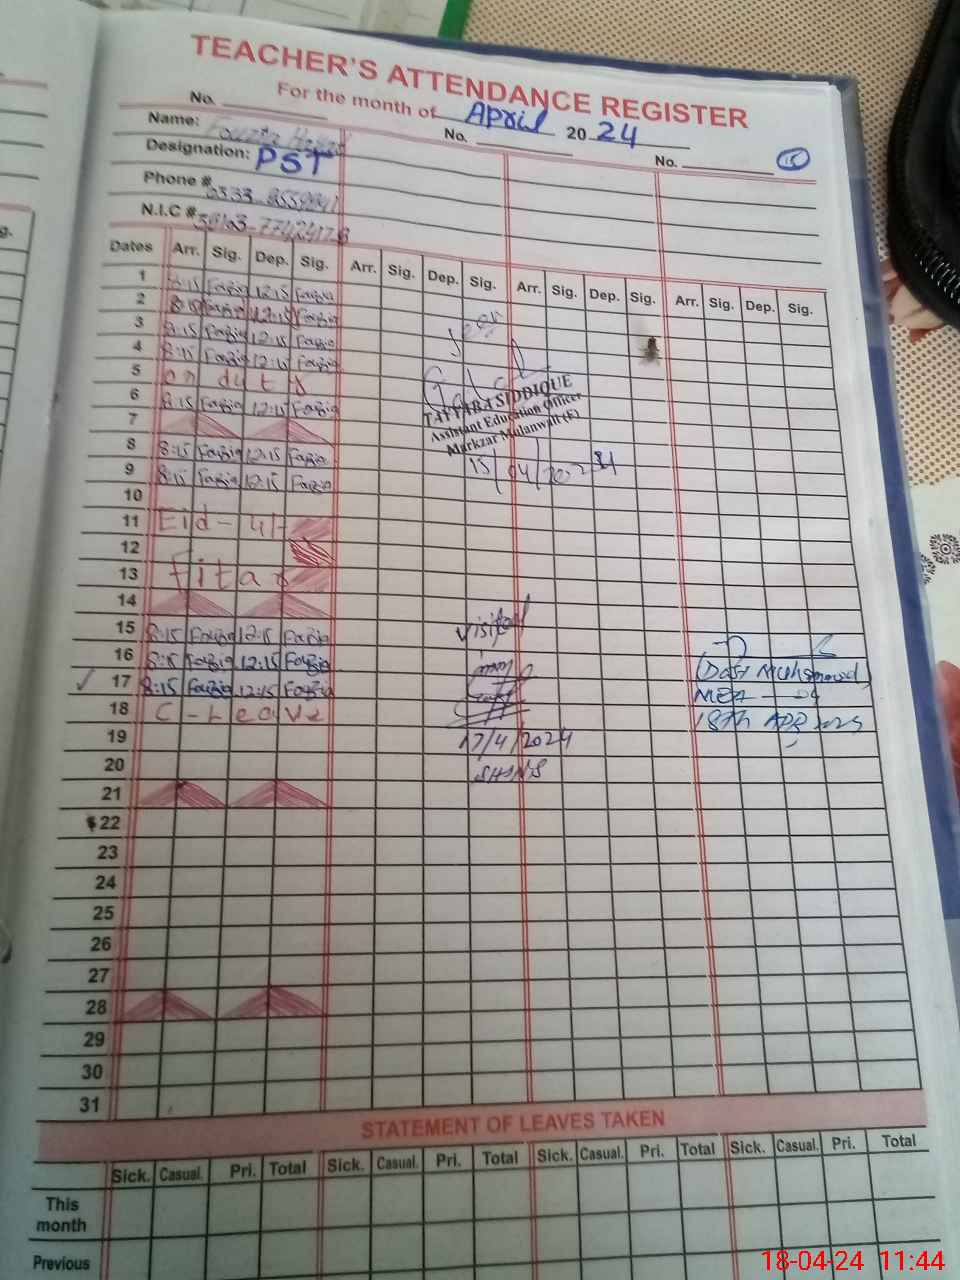 TEACHER'S ATTENDANCE REGISTER
For the month of April 2024
No. No. No. 15
Name:
Designation: PST
Phone #
N.I.C #
Dates Arr. Sig. Dep. Sig. Arr. Sig. Dep. Sig. Arr. Sig. Dep. Sig. Arr. Sig. Dep. Sig.
1 8:15 Fouzia 12:15 Fouzia
2 8:15 Fouzia 12:15 Fouzia
3 8:15 Fouzia 12:15 Fouzia
4 8:15 Fouzia 12:15 Fouzia
5 on duty
6 8:15 Fouzia 12:15 Fouzia
7
8 8:15 Fouzia 12:15 Fouzia
9 8:15 Fouzia 12:15 Fouzia
10
11 Eid-ul-
12
13 Fitar
14
15 8:15 Fouzia 12:15 Fouzia
16 8:15 Fouzia 12:15 Fouzia
17 8:15 Fouzia 12:15 Fouzia
18 C-Leave
19
20
21
22
23
24
25
26
27
28
29
30
31
TAYYABA SIDDIQUE
Assistant Education Officer
Markzar Mulanwali (F)
15/04/2024
Visited
17/4/2024
Dost Muhammad
MEA
18th APR
STATEMENT OF LEAVES TAKEN
Sick. Casual. Pri. Total Sick. Casual. Pri. Total Sick. Casual. Pri. Total Sick. Casual. Pri. Total
This
month
Previous
18-04-24 11:44